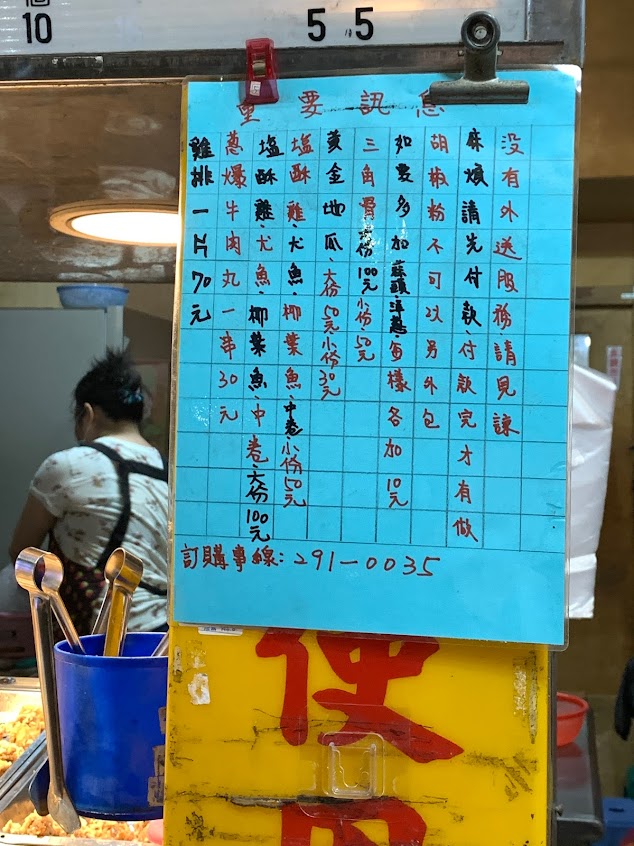 10
5 5
重要訊息
没有外送服務請見諒
麻煩請先付款、付款完才有做
胡椒粉不可以另外包
如要多加蒜頭、洋蔥、每樣各加10元
三角骨大份100元小份、50元
黃金地瓜、大份50元小份30元
塩酥雞、尤魚、椰葉魚、中卷、小份50元
塩酥雞、尤魚、椰葉魚、中卷、大份100元
蔥爆牛肉丸一串30元
雞排一片70元
訂購專線:291-0035
使